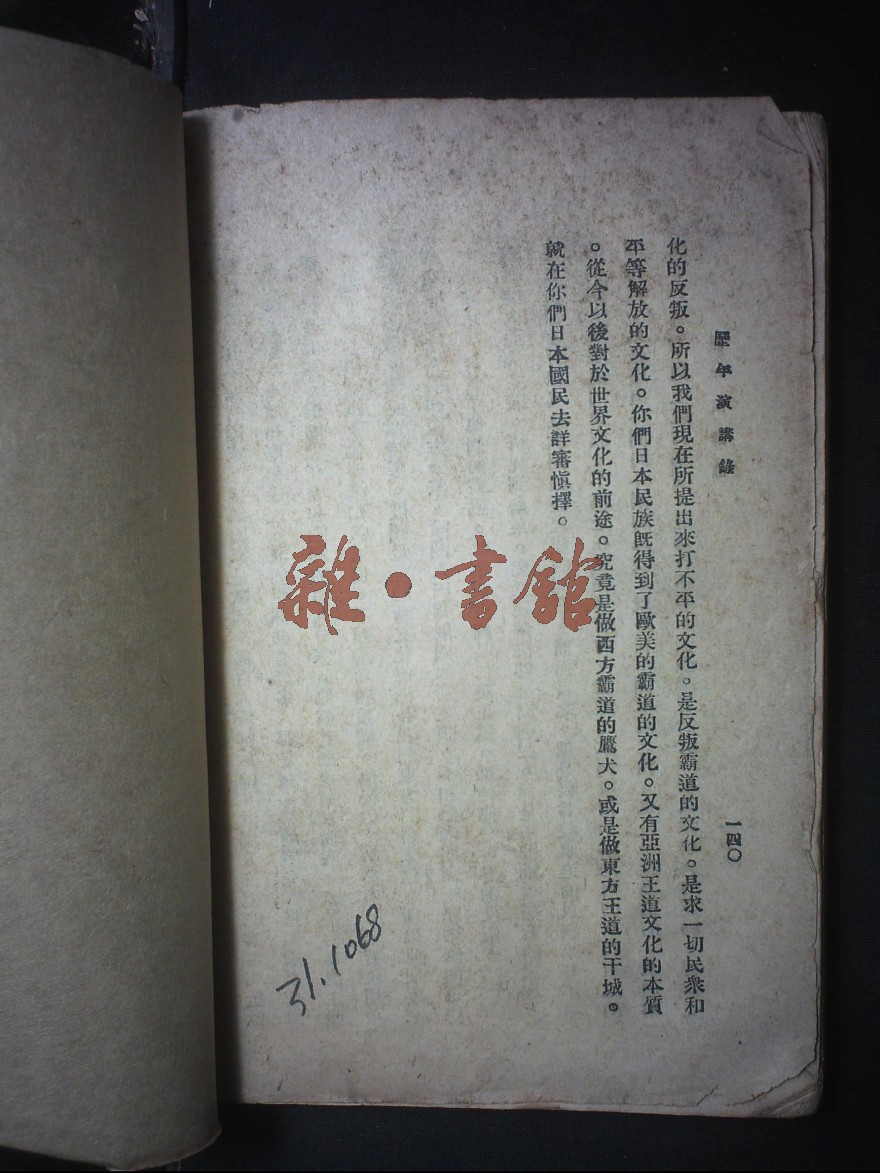 歷年演講錄
一四〇
化的反叛。所以我們現在所提出來打不平的文化。是反叛霸道的文化。是求一切民衆和
平等解放的文化。你們日本民族旣得到了歐美的霸道的文化。又有亞洲王道文化的本質
。從今以後對於世界文化的前途。究竟是做西方霸道的鷹犬。或是做東方王道的干城。
就在你們日本國民去詳審愼擇。
雜·書館
31.1068